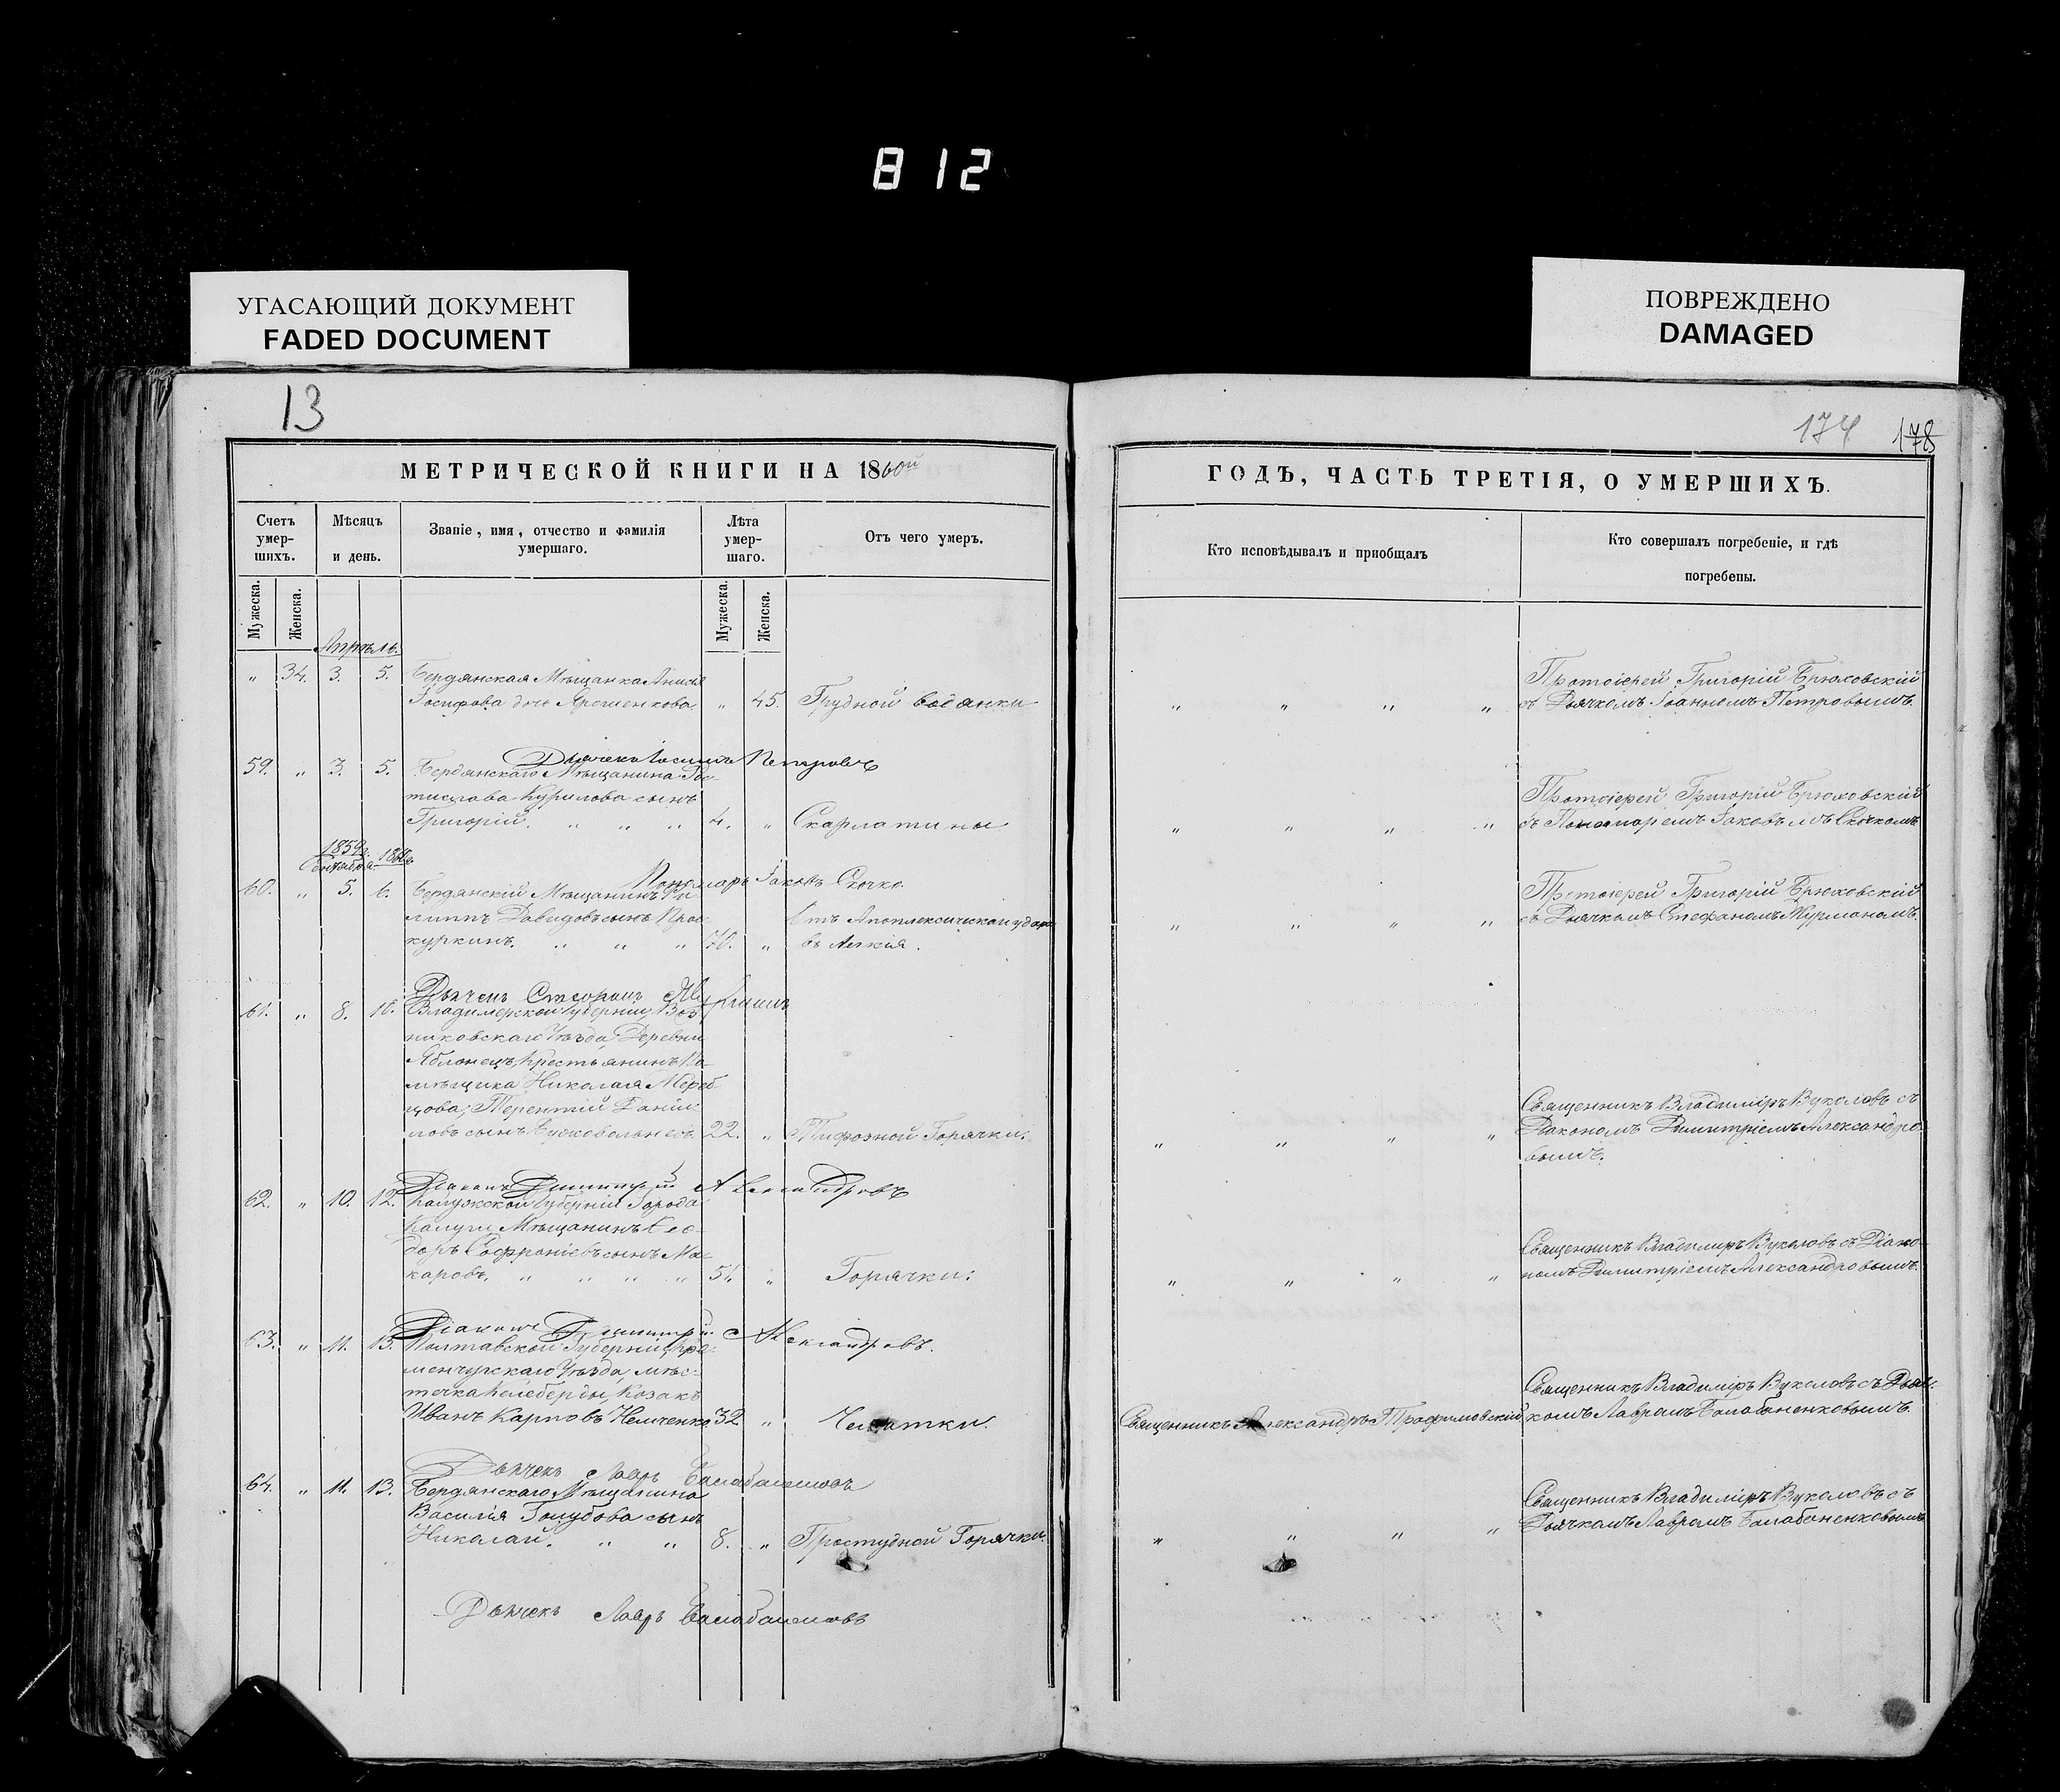 812
УГАСАЮЩИЙ ДОКУМЕНТ
FADED DOCUMENT
ПОВРЕЖДЕНО
DAMAGED
13
174 178
МЕТРИЧЕСКОЙ КНИГИ НА 1860й
ГОДЪ, ЧАСТЬ ТРЕТІЯ, О УМЕРШИХЪ.
Счетъ умер-шихъ.
Мѣсяцъ и день.
Званіе, имя, отчество и фамилія умершаго.
Лѣта умер-шаго.
Отъ чего умеръ.
Кто исповѣдывалъ и приобщалъ
Кто совершалъ погребеніе, и гдѣ погребены.
Мужеска.
Женска.
Мужеска.
Женска.
Апрѣль.
" 34. 3. 5. Бердянская Мѣщанка Анисія
Іосифова дочь Ярешенкова " 45. Грудной водянки
" " " "
Протоіерей Григорій Брюховскій
съ Дьячкомъ Іоанномъ Петровымъ.
Дьячекъ Іоаннъ Петровъ
59. " 3. 5. Бердянскаго Мѣщанина Рос-
тислава Курилова сынъ
Григорій. " " " 4. " Скарлатины
" " " "
Протоіерей Григорій Брюховскій
съ Пономаремъ Іаковъмъ Скочкомъ
Пономарь Іаковъ Скочко.
1859г. 1860г.
Сентября.
60. " 5. 6. Бердянскій Мѣщанинъ Фи-
липпъ Давидовъ сынъ Прос-
куркинъ. " " " 70. "
Отъ Апоплексическаго удара
въ легкія.
" " " "
Протоіерей Григорій Брюховскій
съ Дьячкомъ Стефаномъ Журманомъ.
Дьячекъ Стефанъ
61. " 8. 10. Владимерской Губерніи, Вяз-
никовскаго Уѣзда, Деревни
Яблонецъ, Крестьянинъ По-
мѣщика Николая
Терентій Даніи-
ловъ сынъ 22. " Тифозной Горячки.
" " " "
Священникъ Владиміръ Вуколовъ съ
Діакономъ Димитріемъ Александро-
вымъ.
Діаконъ Димитрій Александровъ
62. " 10. 12. Калужской Губерніи Города
Калуги Мѣщанинъ Ѳео-
доръ Софроніевъ сынъ Ма-
каровъ. " " " " 51. " Горячки.
" " " "
Священникъ Владиміръ Вуколовъ съ Діако-
номъ Димитріемъ Александровымъ.
Діаконъ Димитрій Александровъ.
63. " 11. 13. Полтавской Губерніи, Кре-
менчугскаго Уѣзда, мѣс-
течка Келеберды, Козакъ
Иванъ Карповъ Немченко 32. " Чехотки.
Священникъ Александръ Трофимовскій
Священникъ Владиміръ Вуколовъ съ Дьяч-
комъ Лавромъ Балабаненковымъ.
Дьячекъ Лавръ Балабаненковъ
64. " 11. 13. Бердянскаго Мѣщанина
Василія Голубова сынъ
Николай. " " 8. " Простудной Горячки.
" " " "
Священникъ Владиміръ Вуколовъ съ
Дьячкомъ Лавромъ Балабаненковымъ
Дьячекъ Лавръ Балабаненковъ